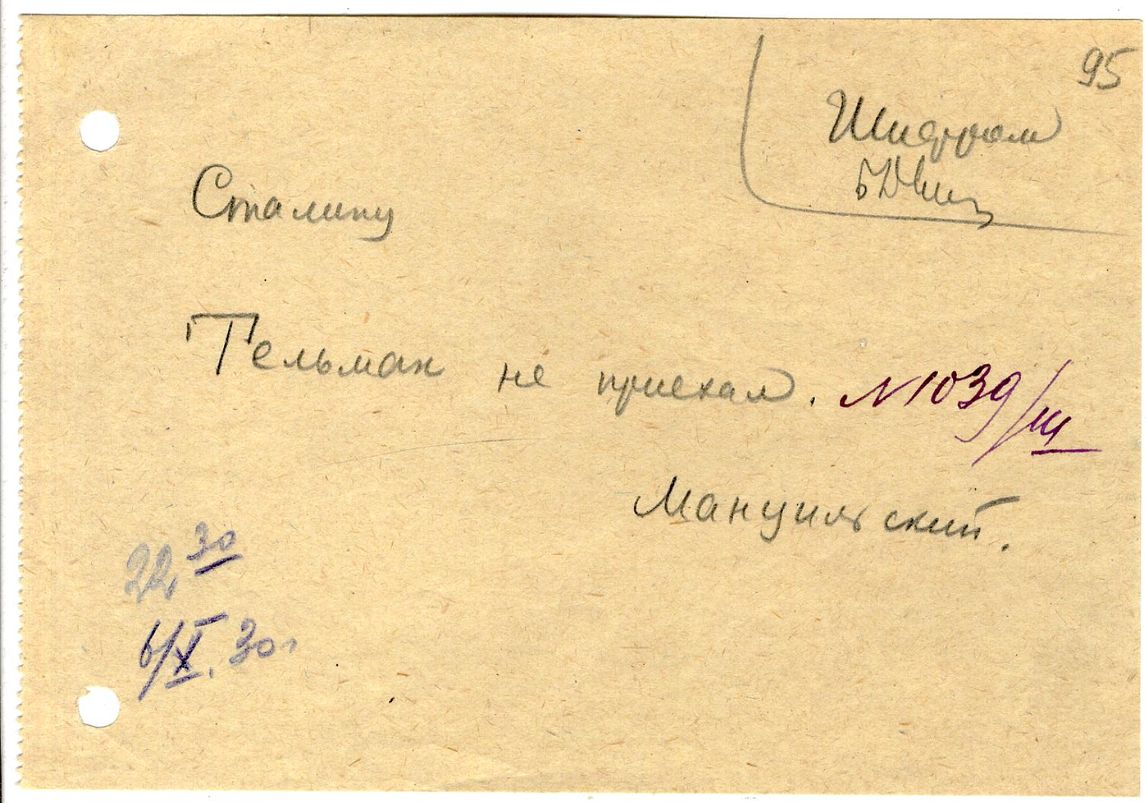 95
Шифром
Сталину
Тельман не приехал. N1039/ш
Мануильский.
22 30
6/X.30г